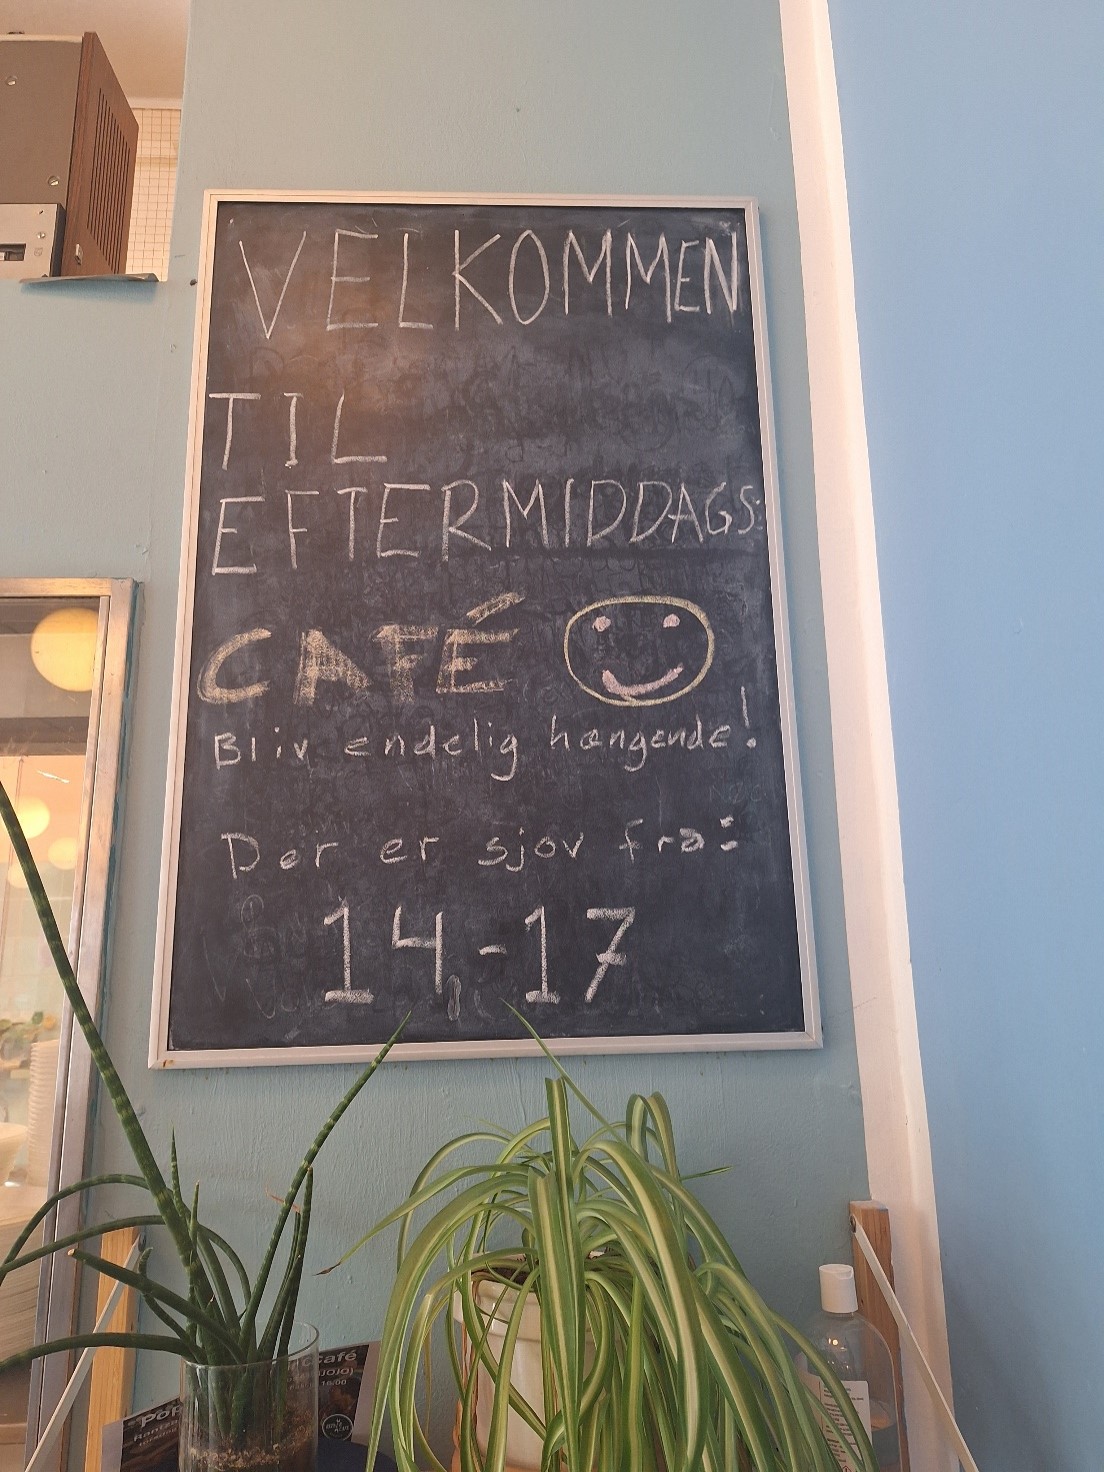 VELKOMMEN
TIL
EFTERMIDDAGS:
CAFÉ
Bliv endelig hængende!
Der er sjov fra:
14-17
Café
JOJO)
Pop